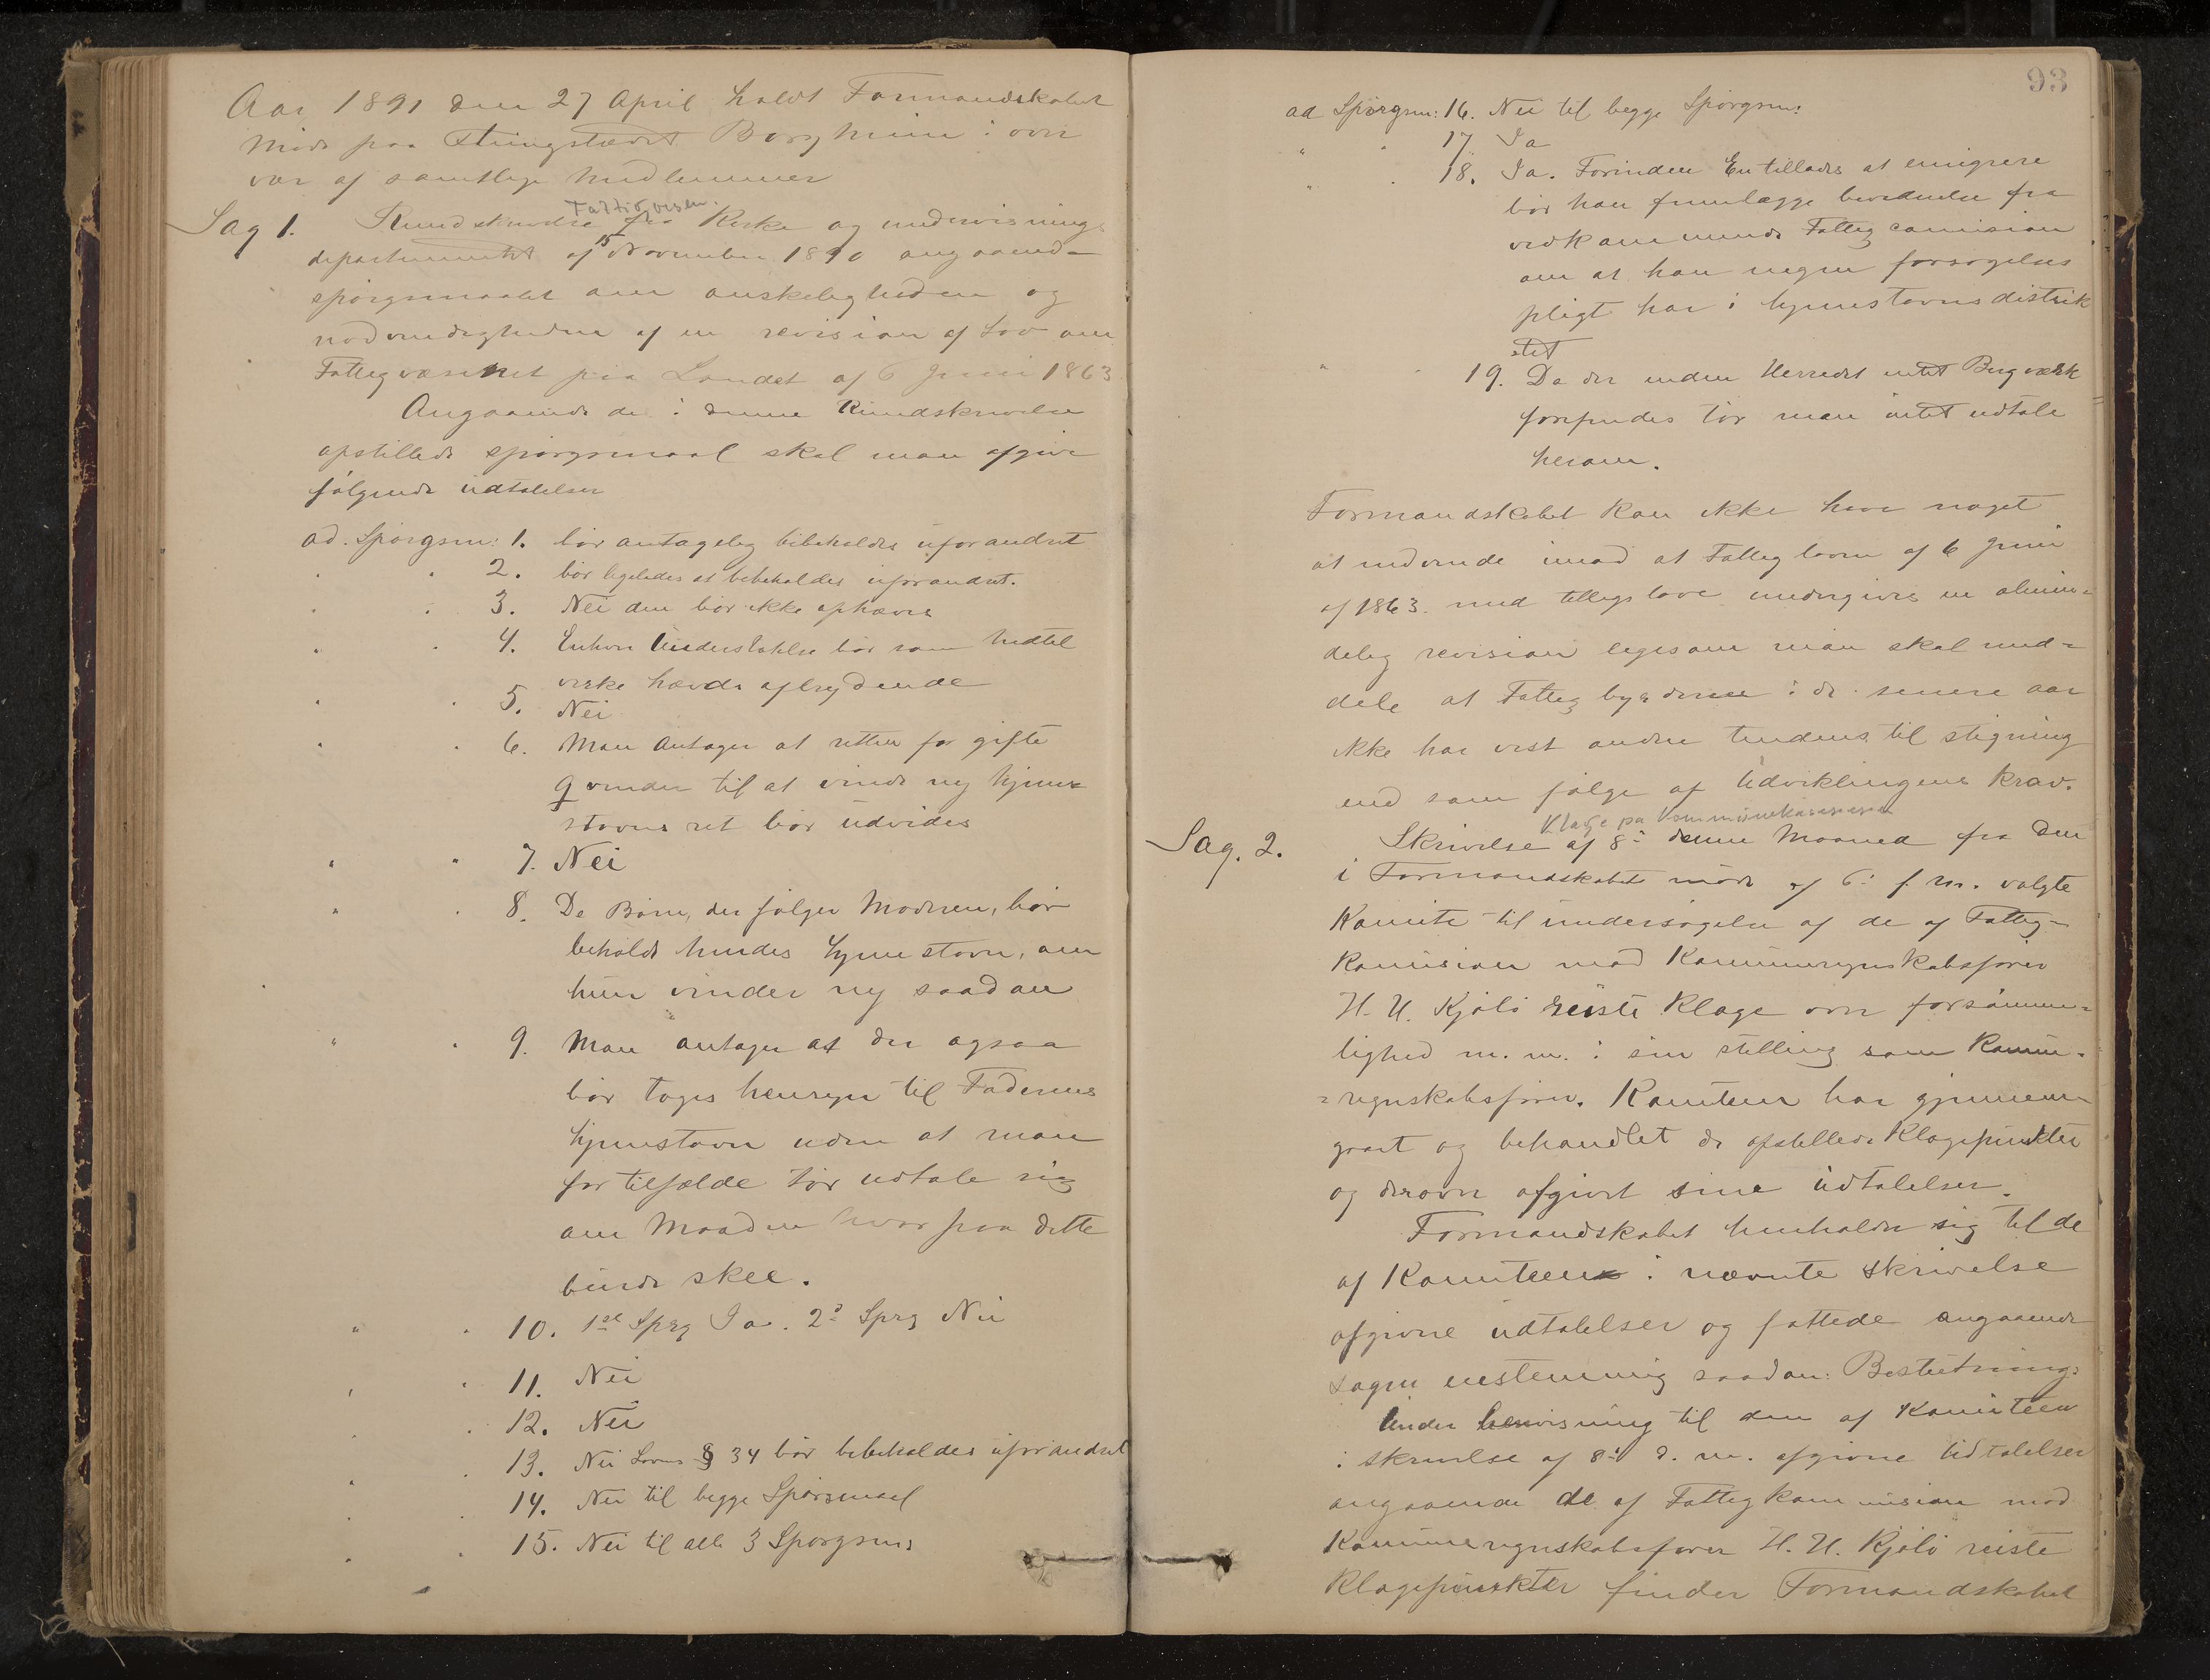 Aar 1891 den 27 April holdt Formandskabet
møde paa Thingstædet Borgheim i over
vær af samtlige medlemmer
Fattigvesen.
Sag 1. Rundskrivelse fra Kirke og undervisnings
departementet af 15 November 1890 angaaende
spørgsmaalet om ønskeligheden og
nødvendigheden af en revision af Lov om
Fattigvæsenet paa Landet af 6 Juni 1863
Angaaende de i denne Rundskrivelse
opstillede spørgsmaal skal man afgive
følgende udtalelser
ad. Spørgsm: 1. bør antagelig bibeholdes uforandret
" " 2. bør ligeledes at bebeholdes uforandret.
" " 3. Nei den bør ikke ophæves
" " 4. Enhver Understøttelse bør som hidtil
virke hævds afbrydende
" " 5. Nei
" " 6. Man antager at retten for gifte
qvinder til at vinde ny hjem-
stavns ret bør udvides
" " 7. Nei
" " 8. De Børn, der følger Moderen, bør
beholde hendes hjemstavn, om
hun vinder ny saadan
" " 9. Man antager at der ogsaa
bør tages hensyn til Faderens
hjemstavn uden at man
for tilfælde tør udtale sig
om Maaden hvorpaa dette
burde skee.
" " 10. 1ste Sprg Ja. 2d Sprg Nei
" " 11. Nei
" " 12. Nei
" " 13. Nei Lovens § 34 bør bibeholdes uforandret
" " 14. Nei til begge Spørsmael
" " 15. Nei til alle 3 Spørgsm:
93
ad Spørgsm: 16. Nei til begge Spørgsm:
" " 17. Ja
" " 18. Ja. Forinden En tillades at emigrere
bør han fremlægge bevidnelse fra
vedkommende Fattigcomision
om at han ingen forsørgelses
pligt har i hjemstavnsdistrik
tet
" " 19. Da der inden Herredet intet Bergværk
forefindes tør man intet udtale
herom.
Formandskabet kan ikke have noget
at indvende imod at Fattigloven af 6 Juni
af 1863. med tillægslove undergives en almin=
delig revision ligesom man skal med=
dele at Fattigbyrderne i de senere aar
ikke har vist anden tendens til stigning
end som følge af Udviklingens Krav.
Klage på kommunekassereren
Sag. 2. Skrivelse af 8de denne Maaned fra den
i Formandskabets møde af 6te f. m. valgte
Komite til undersøgelse af de af Fattig-
komision mod Kommuneregnskabsfører
H. U. Kjølø reiste Klage over forsømme=
lighed m. m. i sin stilling som Komm-
=regnskabsfører. Komiteen har gjennem
gaaet og behandlet de opstillede Klagepunkter
og derover afgivet sine udtalelser.
Formandskabet henholder sig til de
af Komiteen i nævnte skrivelse
afgivne udtalelser og fattede angaaende
sagen enstemmig saadan: Beslutning:
Under henvisning til den af Komiteen
i skrivelse af 8de d. m. afgivne Udtalelser
angaaende de af Fattigkommision mod
Kommuneregnskabsfører H. U. Kjølø reiste
Klagepunkter finder Formandskabet